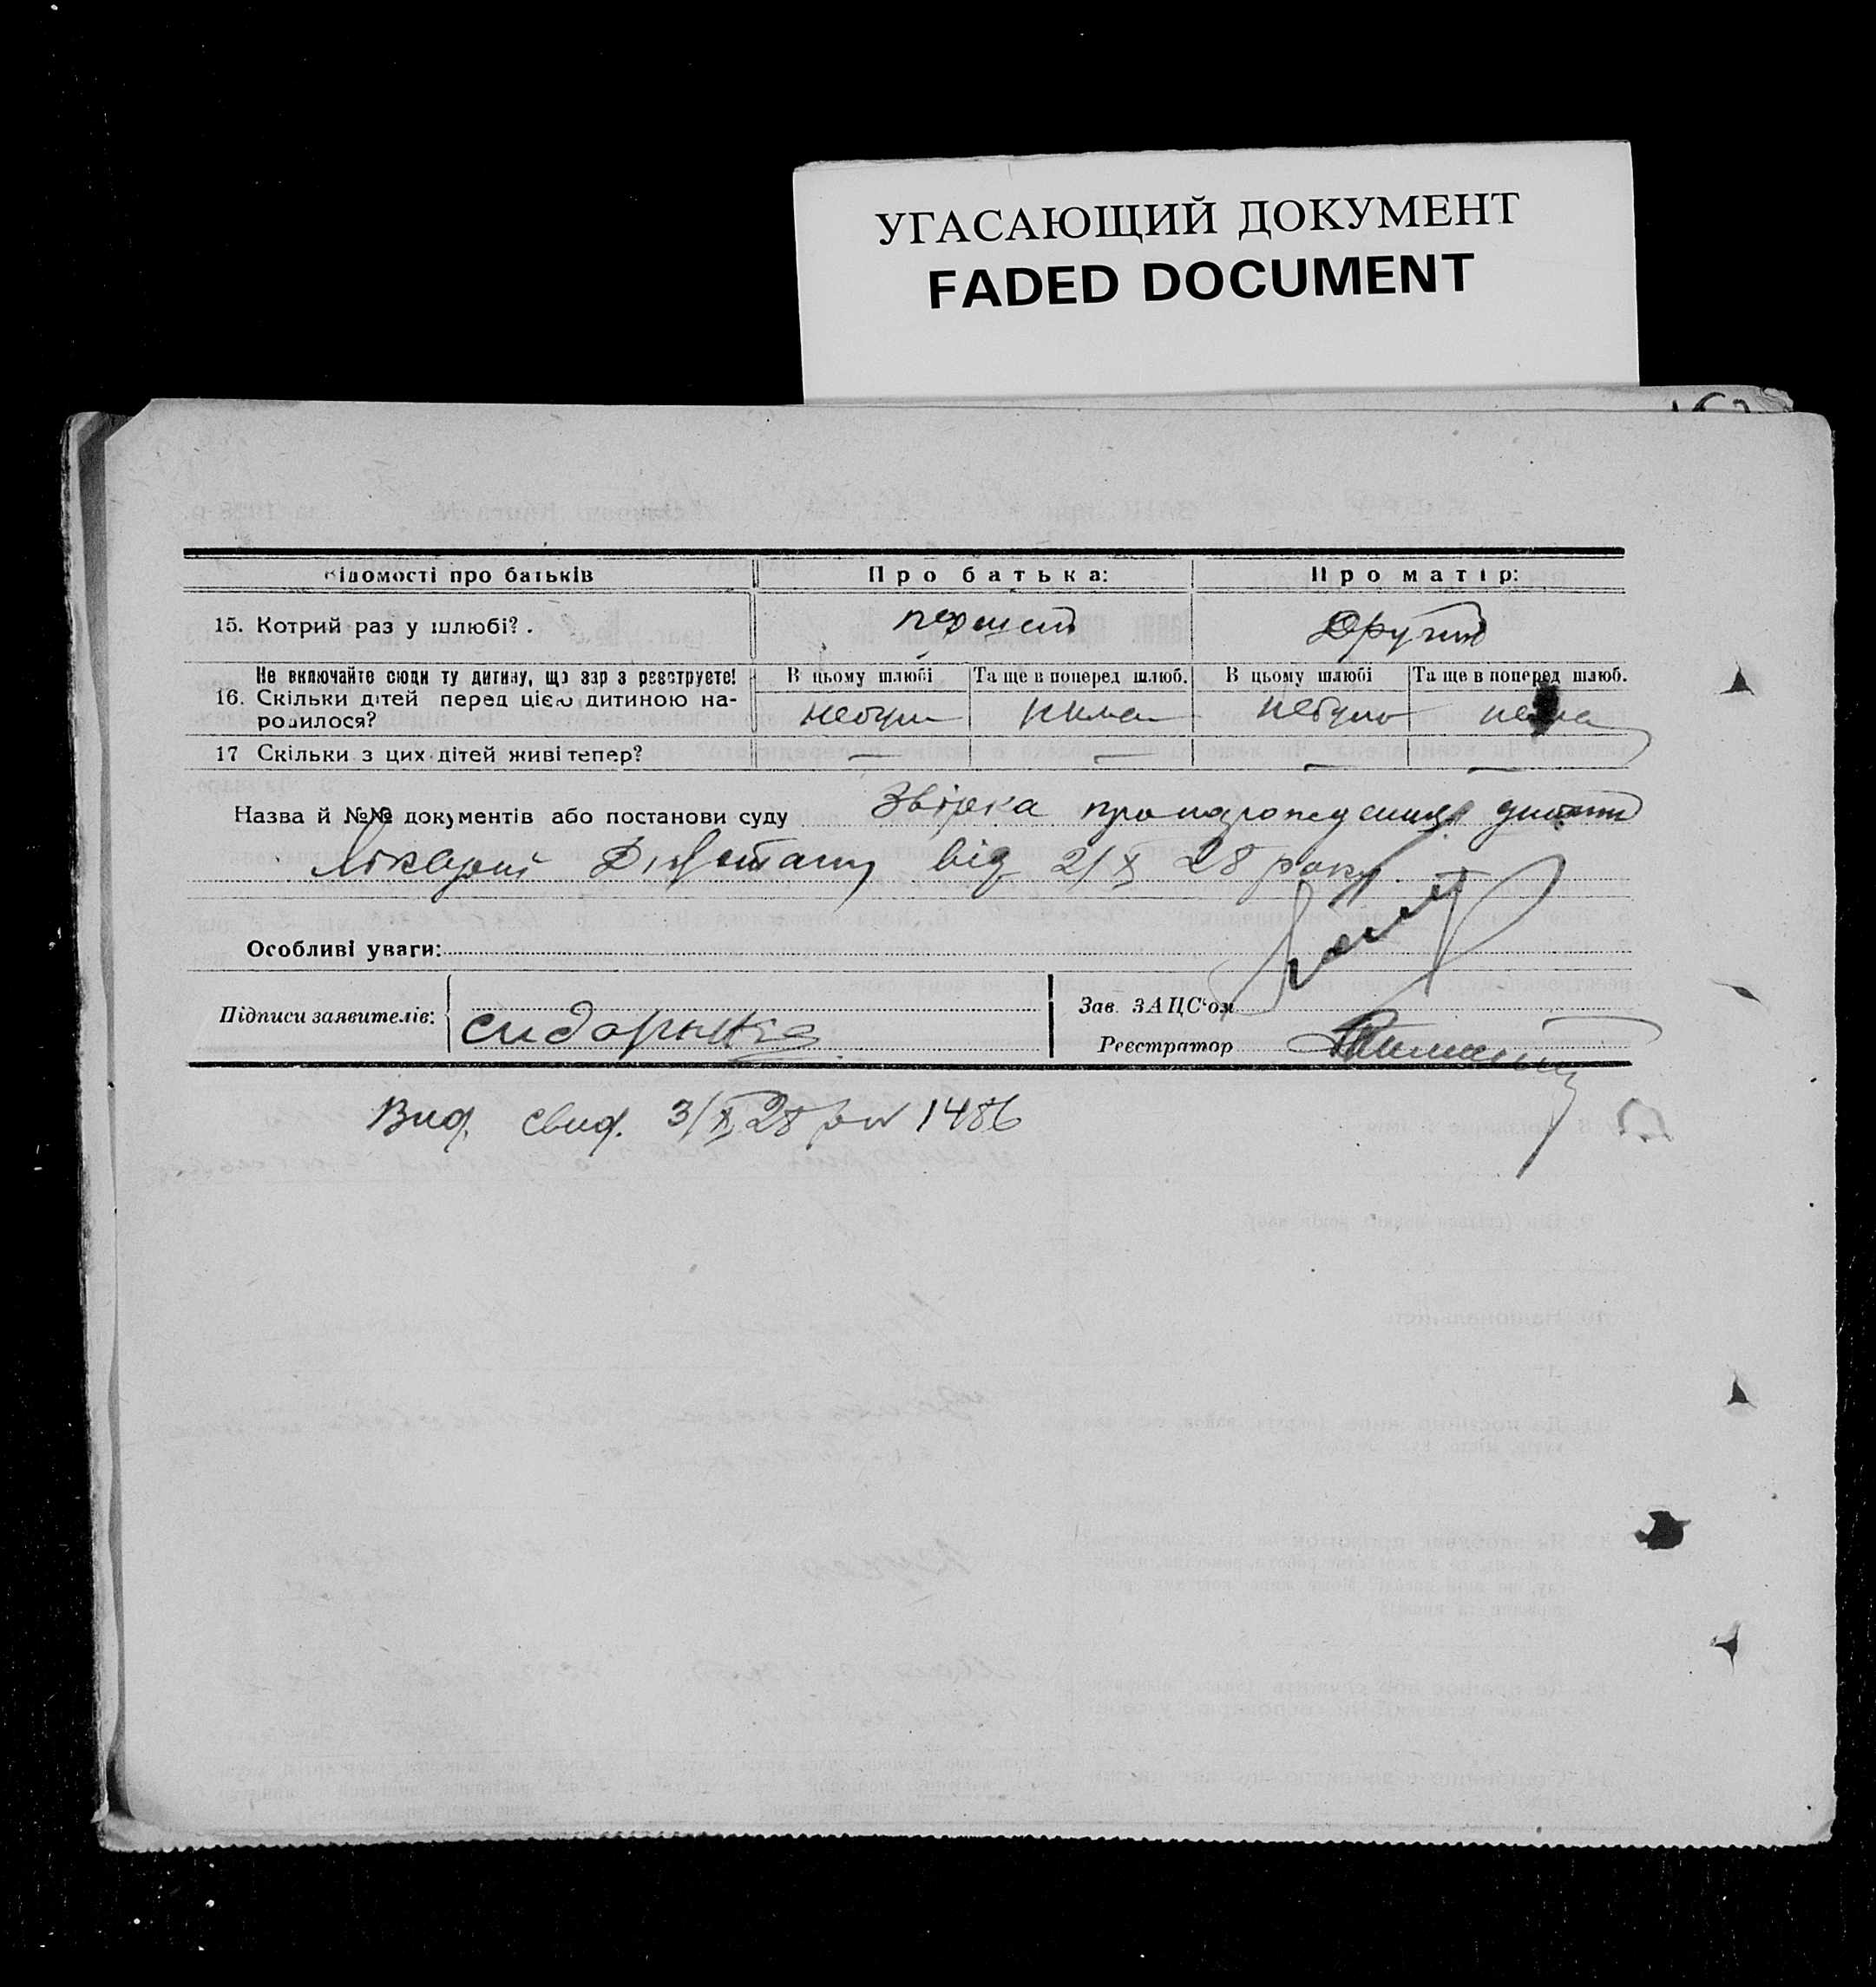 УГАСАЮЩИЙ ДОКУМЕНТ
FADED DOCUMENT
відомості про батьків Про батька: Про матір:
15. Котрий раз у шлюбі?. перший Другий
Не включайте сюди ту дитину, що зараз реєструєте! В цьому шлюбі Та ще в поперед шлюб. В цьому шлюбі Та ще в поперед шлюб.
16. Скільки дітей перед цією дитиною на-
родилося? небули нема небуло нема
17 Скільки з цих дітей живі тепер? — — — —
Назва й №№ документів або постанови суду дитини
від 2/X 28 року
Особливі уваги:
Підписи заявителів: Зав. ЗАЦС'ом
Реєстратор
Вид. свид. 3/X 28 1486